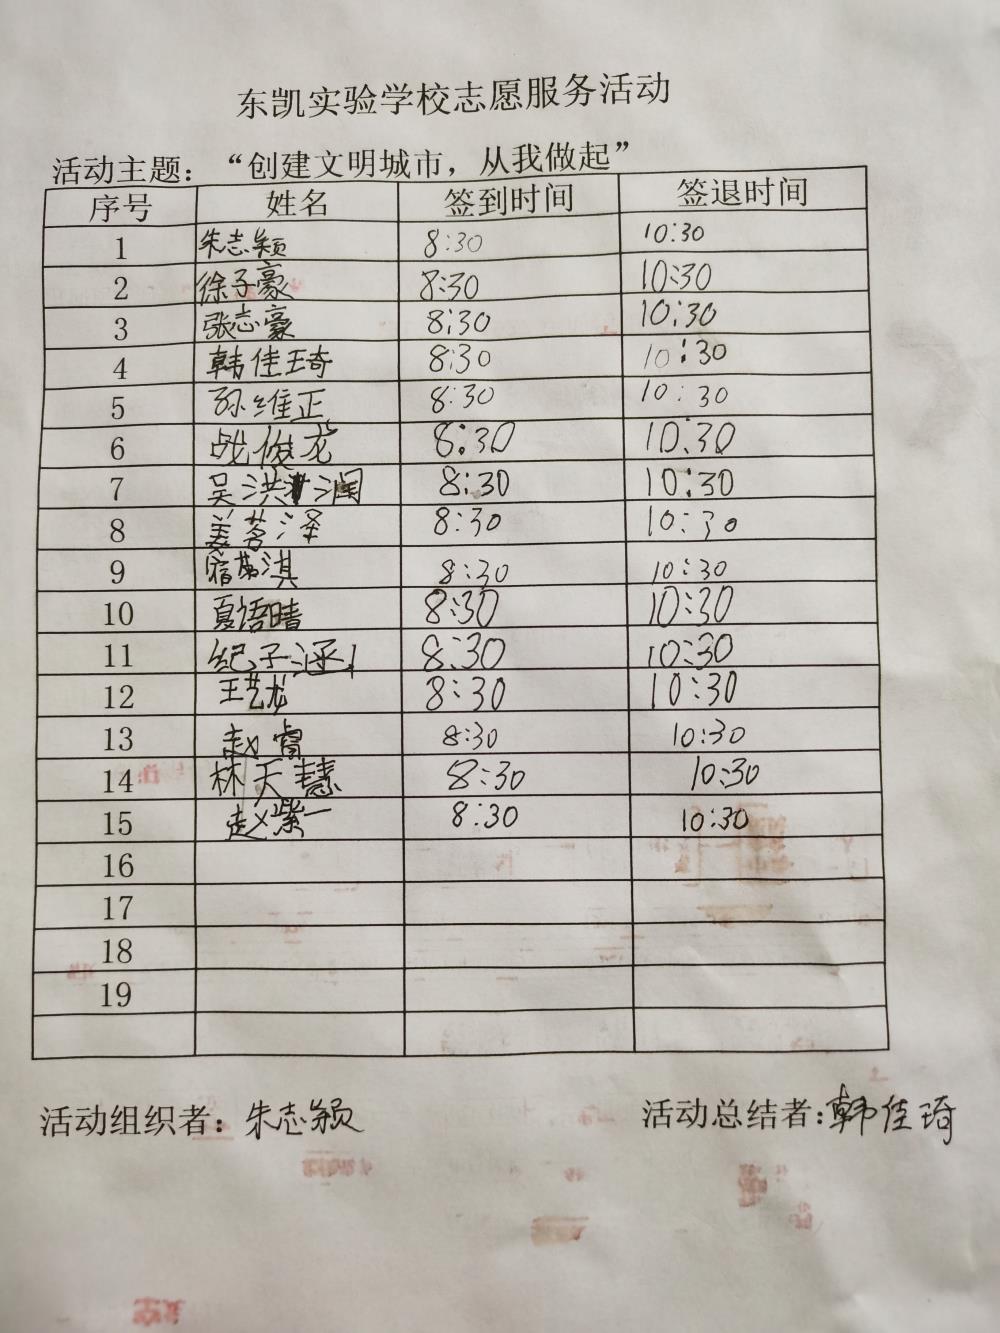 东凯实验学校志愿服务活动
活动主题：“创建文明城市，从我做起”
序号 姓名 签到时间 签退时间
1 朱志颖 8:30 10:30
2 徐子豪 8:30 10:30
3 张志豪 8:30 10:30
4 韩佳琦 8:30 10:30
5 孙维正 8:30 10:30
6 战俊龙 8:30 10:30
7 吴洪润 8:30 10:30
8 姜茗泽 8:30 10:30
9 8:30 10:30
10 夏语晴 8:30 10:30
11 纪子涵 8:30 10:30
12 王艺龙 8:30 10:30
13 赵睿 8:30 10:30
14 林天慧 8:30 10:30
15 赵紫一 8:30 10:30
16
17
18
19
活动组织者：朱志颖 活动总结者:韩佳琦